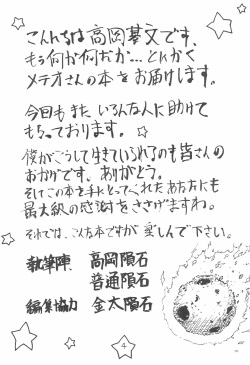 こんちは高岡基文です、
もう何が何おか…とにかく
メテオさんの本をお届けします。
今回もまた いろんな人に助けて
もらっております。
僕がこうして生きていられるのも皆さんの
おかげです、ありがとう。
そしてこの本を手にとってくれたあなたにも
最大級の感謝をささげますわ。
それでは、こんな本ですが 楽しんで下さい。
執筆陣 高岡隕石
普通隕石
編集協力 金太隕石
4